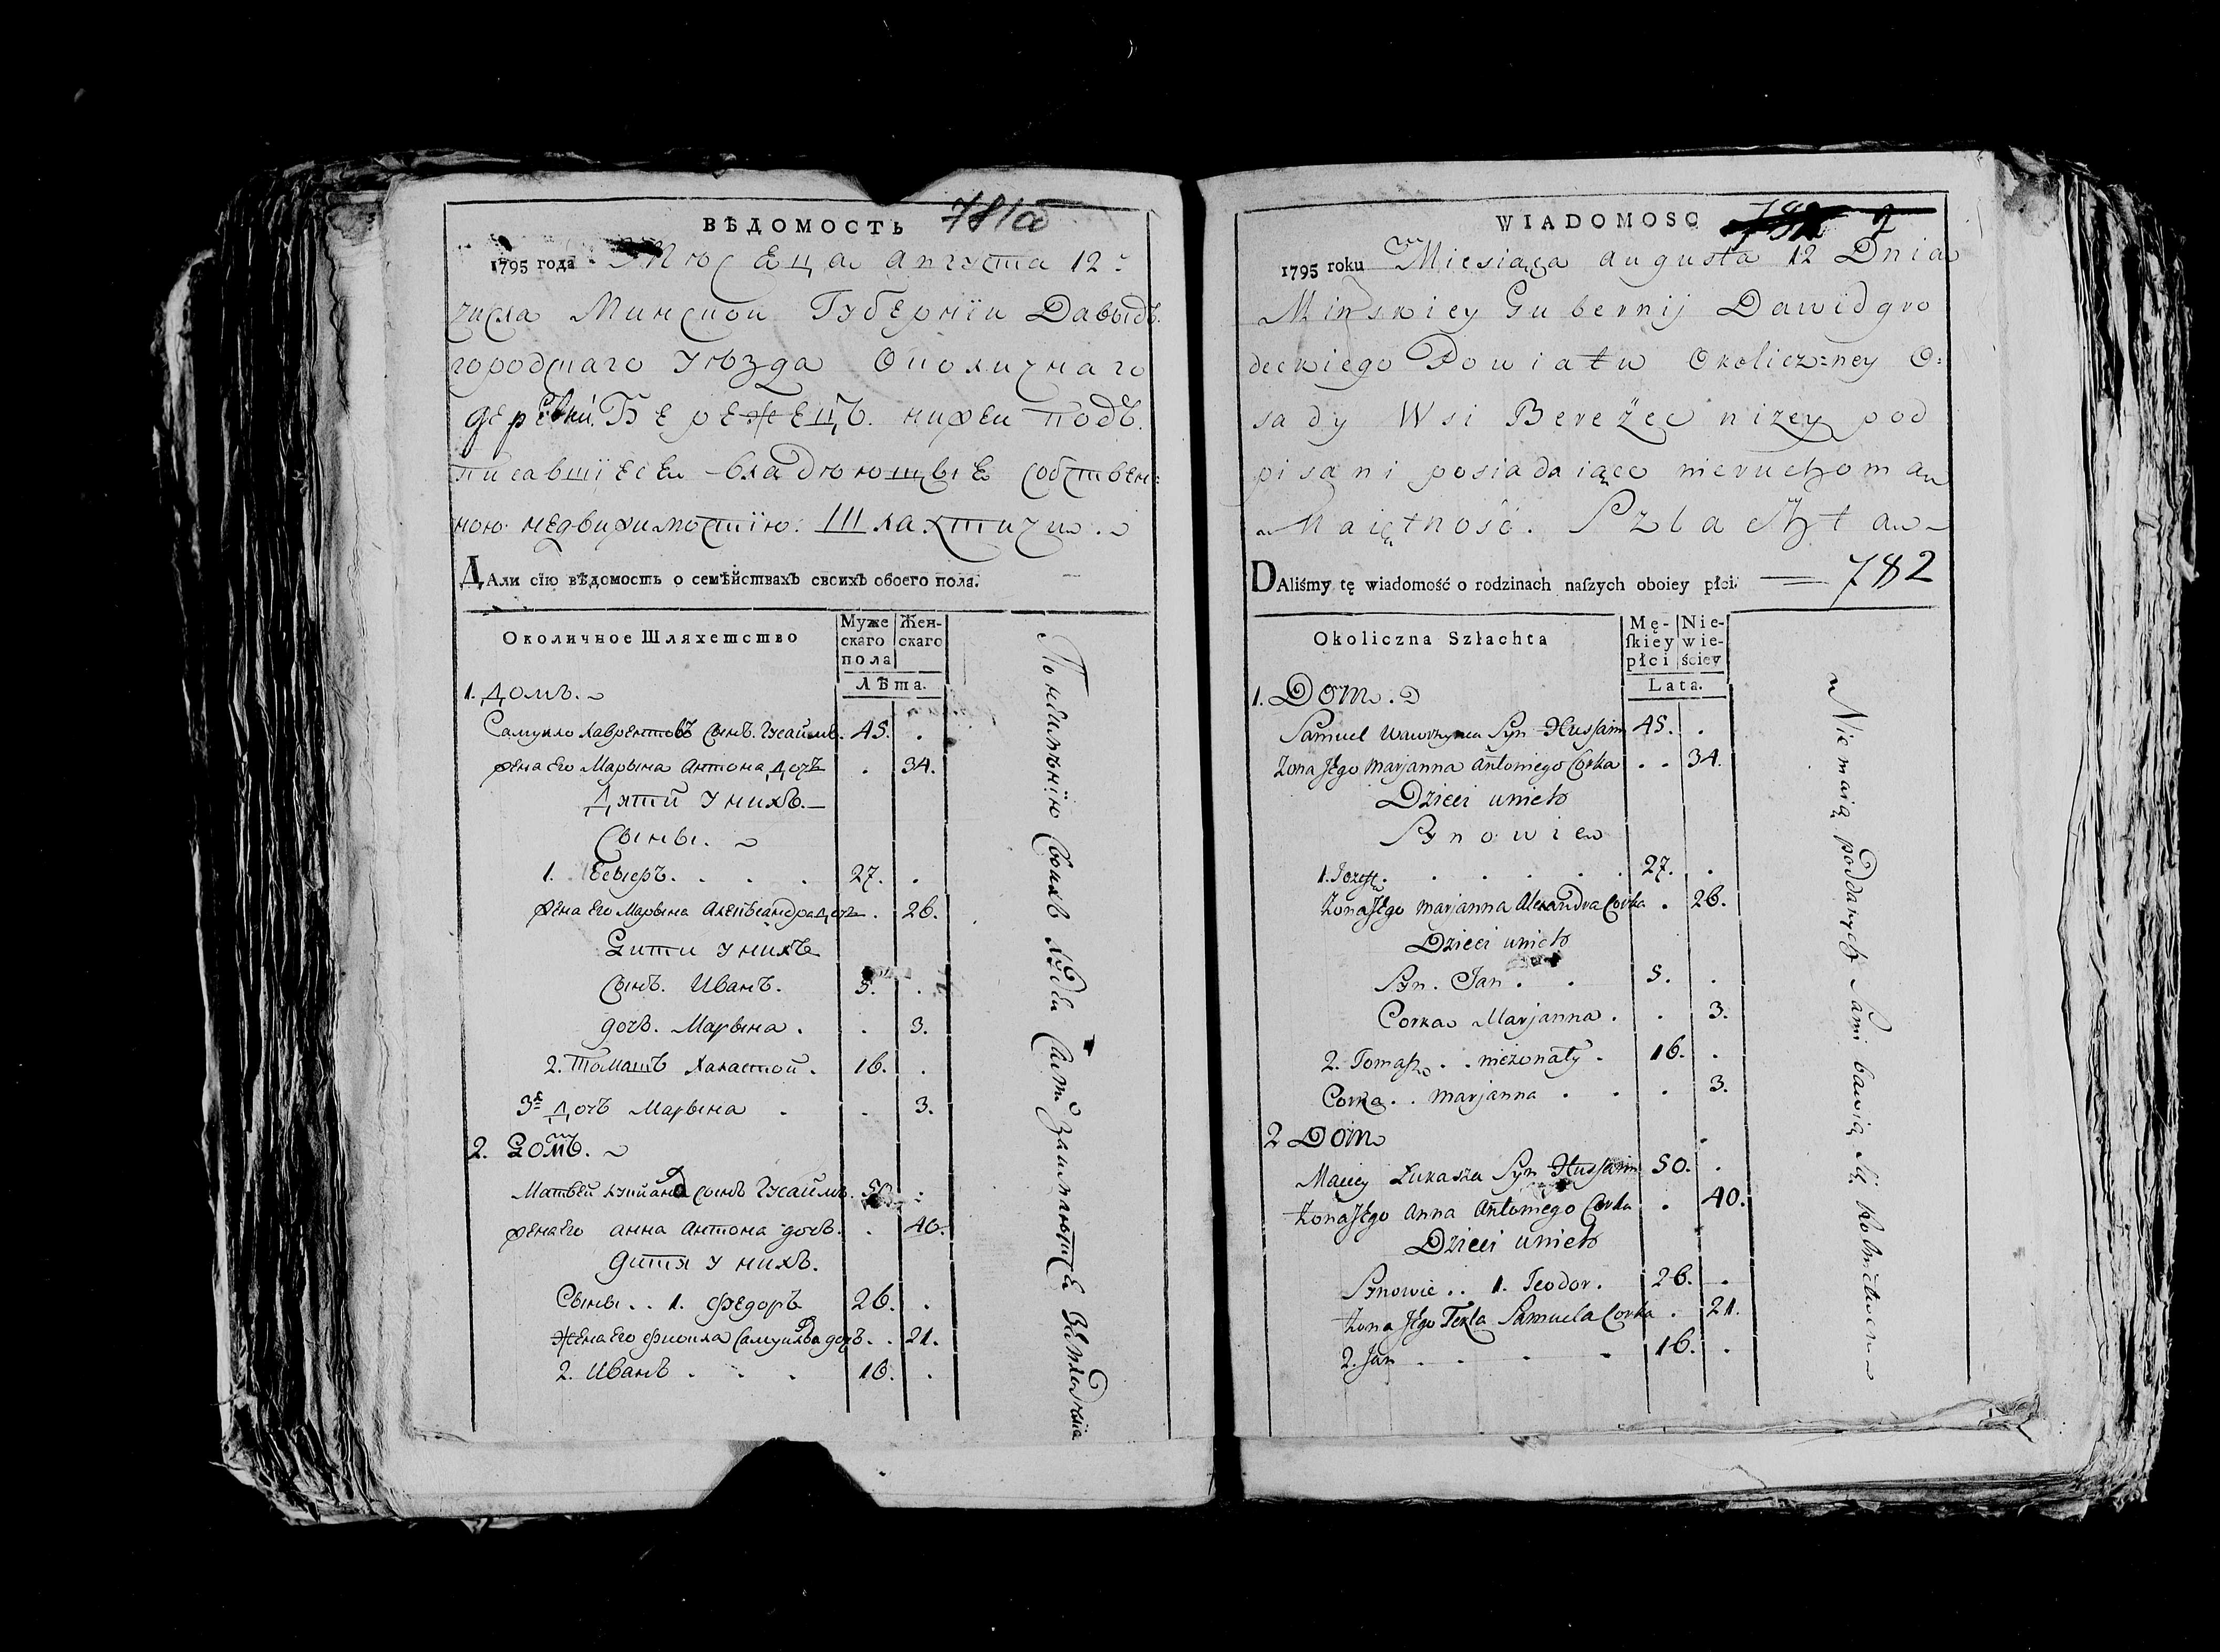 ВѢДОМОСТЬ 781а
1795 года Мѣсеца Августа 12:
числа Минской Губернїи Давыдъ
городскаго Уѣзда Околичнаго
деревни Бережецъ. нижеи подъ
писавшїесеи владѣющые собствен=
ною недвижимостїю. Шляхтичи.
ДАли сїю вѣдомость о семѣйствахъ своихъ обоего пола.
Околичное Шляхетство
Мужескаго пола
Женскаго
Лѣта.
1. Домъ.
Самуило Лаврентовъ Сынъ. Гусаимъ. 45. .
жена Его Марьяна Антона Дочъ . 34.
Дяти у нихъ.
Сыны.
1. . . . 27. .
жена Его Марьяна Алекъсандра дочъ . 26.
Дити у нихъ
Сынъ. Иванъ. 5. .
дочъ. Марьяна . . 3.
2. Томашъ Халастой. 16. .
3я Дочъ Марьяна . . 3.
2. Домъ.
Матвѣй сынъ Гусаимъ.
жена Его анна антона дочъ. . 40.
дитя у нихъ.
Сыны . . 1. Федоръ 26. .
Жена Его Самуилва дочъ . . 21.
2. Иванъ . . . 16. .
WIADOMOSC 782
1795 roku Miesiąca augusta 12 Dnia
Minskiey Gubernij Dawidgro
deckiego Powiatu Okolicz=ney O=
sady Wsi Bereżec niżey pod
pisani posiadaiące nieruchoma
Maiętność. Szlachta
DAliśmy tę wiadomość o rodzinach naſzych oboiey płci. 782
Okoliczna Szlachta
Mę-ſkiey płci
Nie-wie-ściey
Lata.
1. Dom.
Samuel Wawrzynca Syn Hussaim 45. .
Zona Jego Marjanna Antoniego Corka . . 34.
Dzieci unich
Synowie
1. Jozeff . . . . . 27. .
Zona Jego Marjanna Alexandra Corka . 26.
Dzieci unich
Syn. Jan . . 5. .
Corka Marjanna . . 3.
2. Tomasz . . nieżonaty . 16. .
Corka . . Marjanna . . . 3.
2 Dom
Maciey Łukasza Syn Hussaim 50. .
Zona Jego Anna Antoniego Corka . 40.
Dzieci unich
Synowie . . 1. Teodor . 26. .
Zona Jego Tekla Samuela Corka . 21.
2. Jan . . . . 16. .
Nie maią poddanych Sami bawią się Rolnictwem